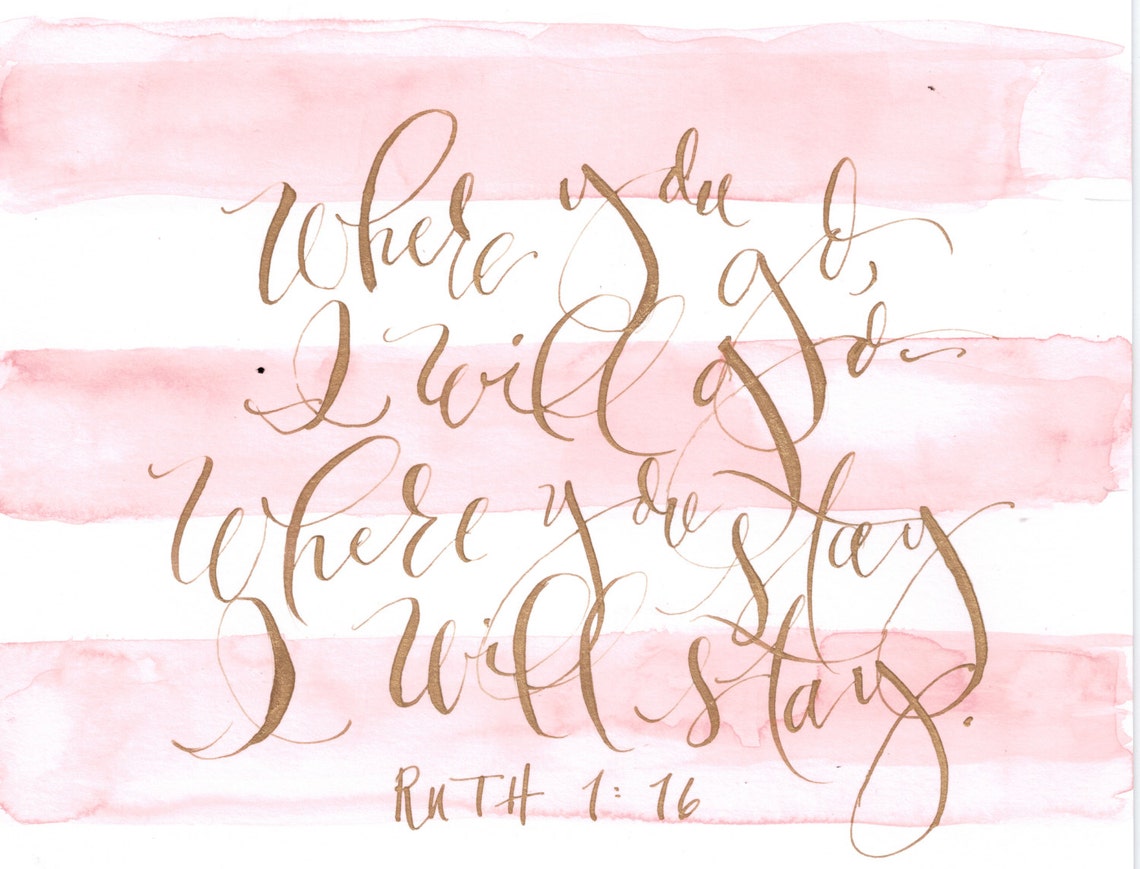 Where you go,
I will go
Where you stay
I will stay.
RuTH 1:16